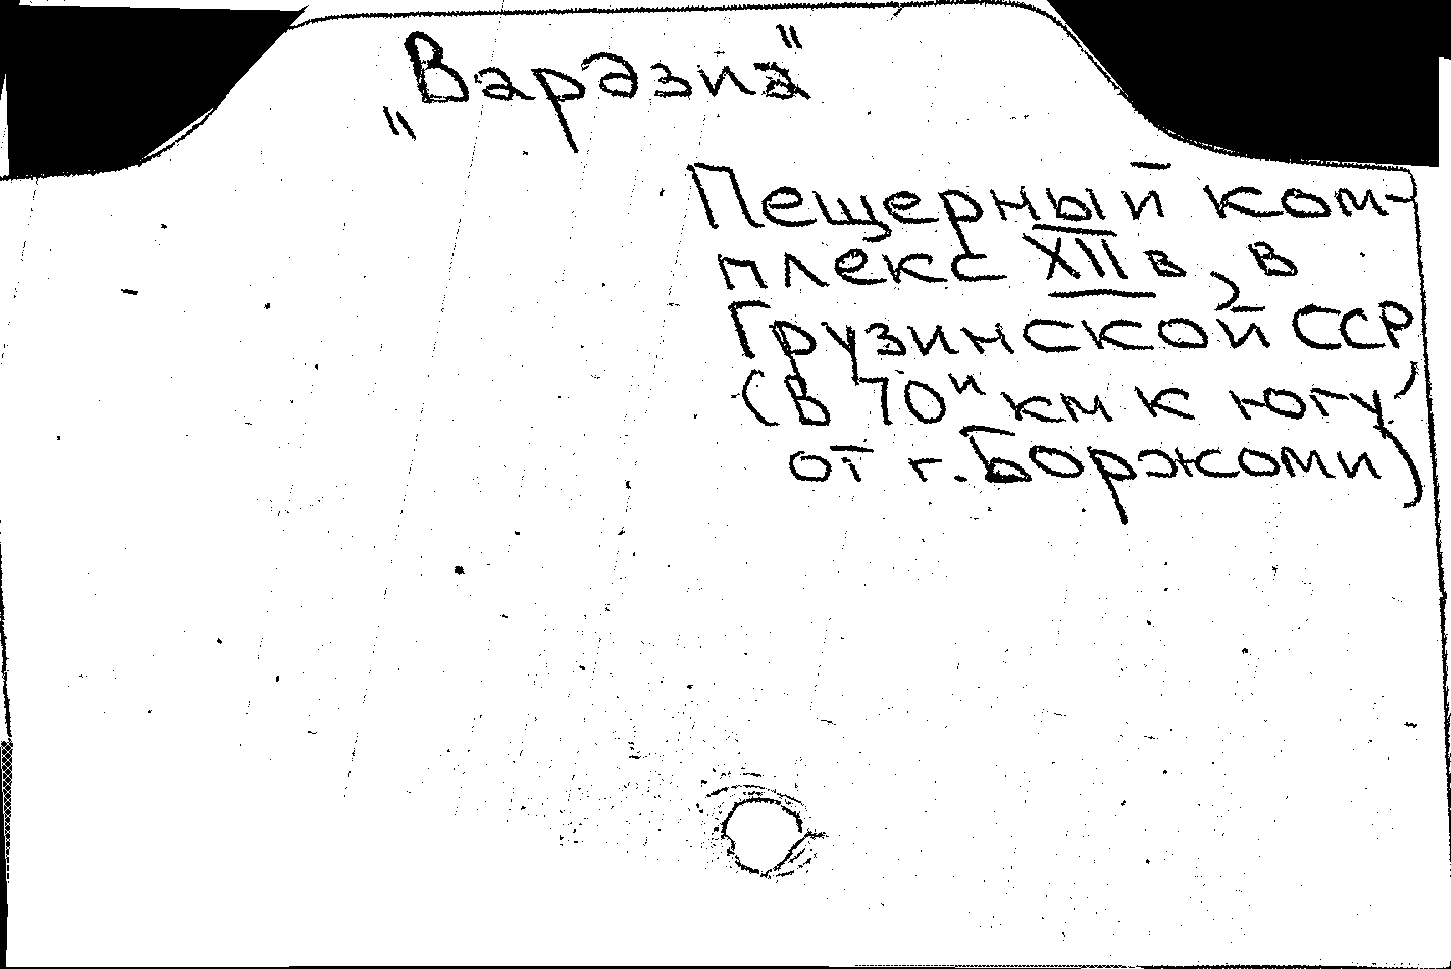 „Вардзиа"
Пещерный ком-
плекс XII в, в
Грузинской ССР,
(В 70и км к югу
от г. Боржоми)